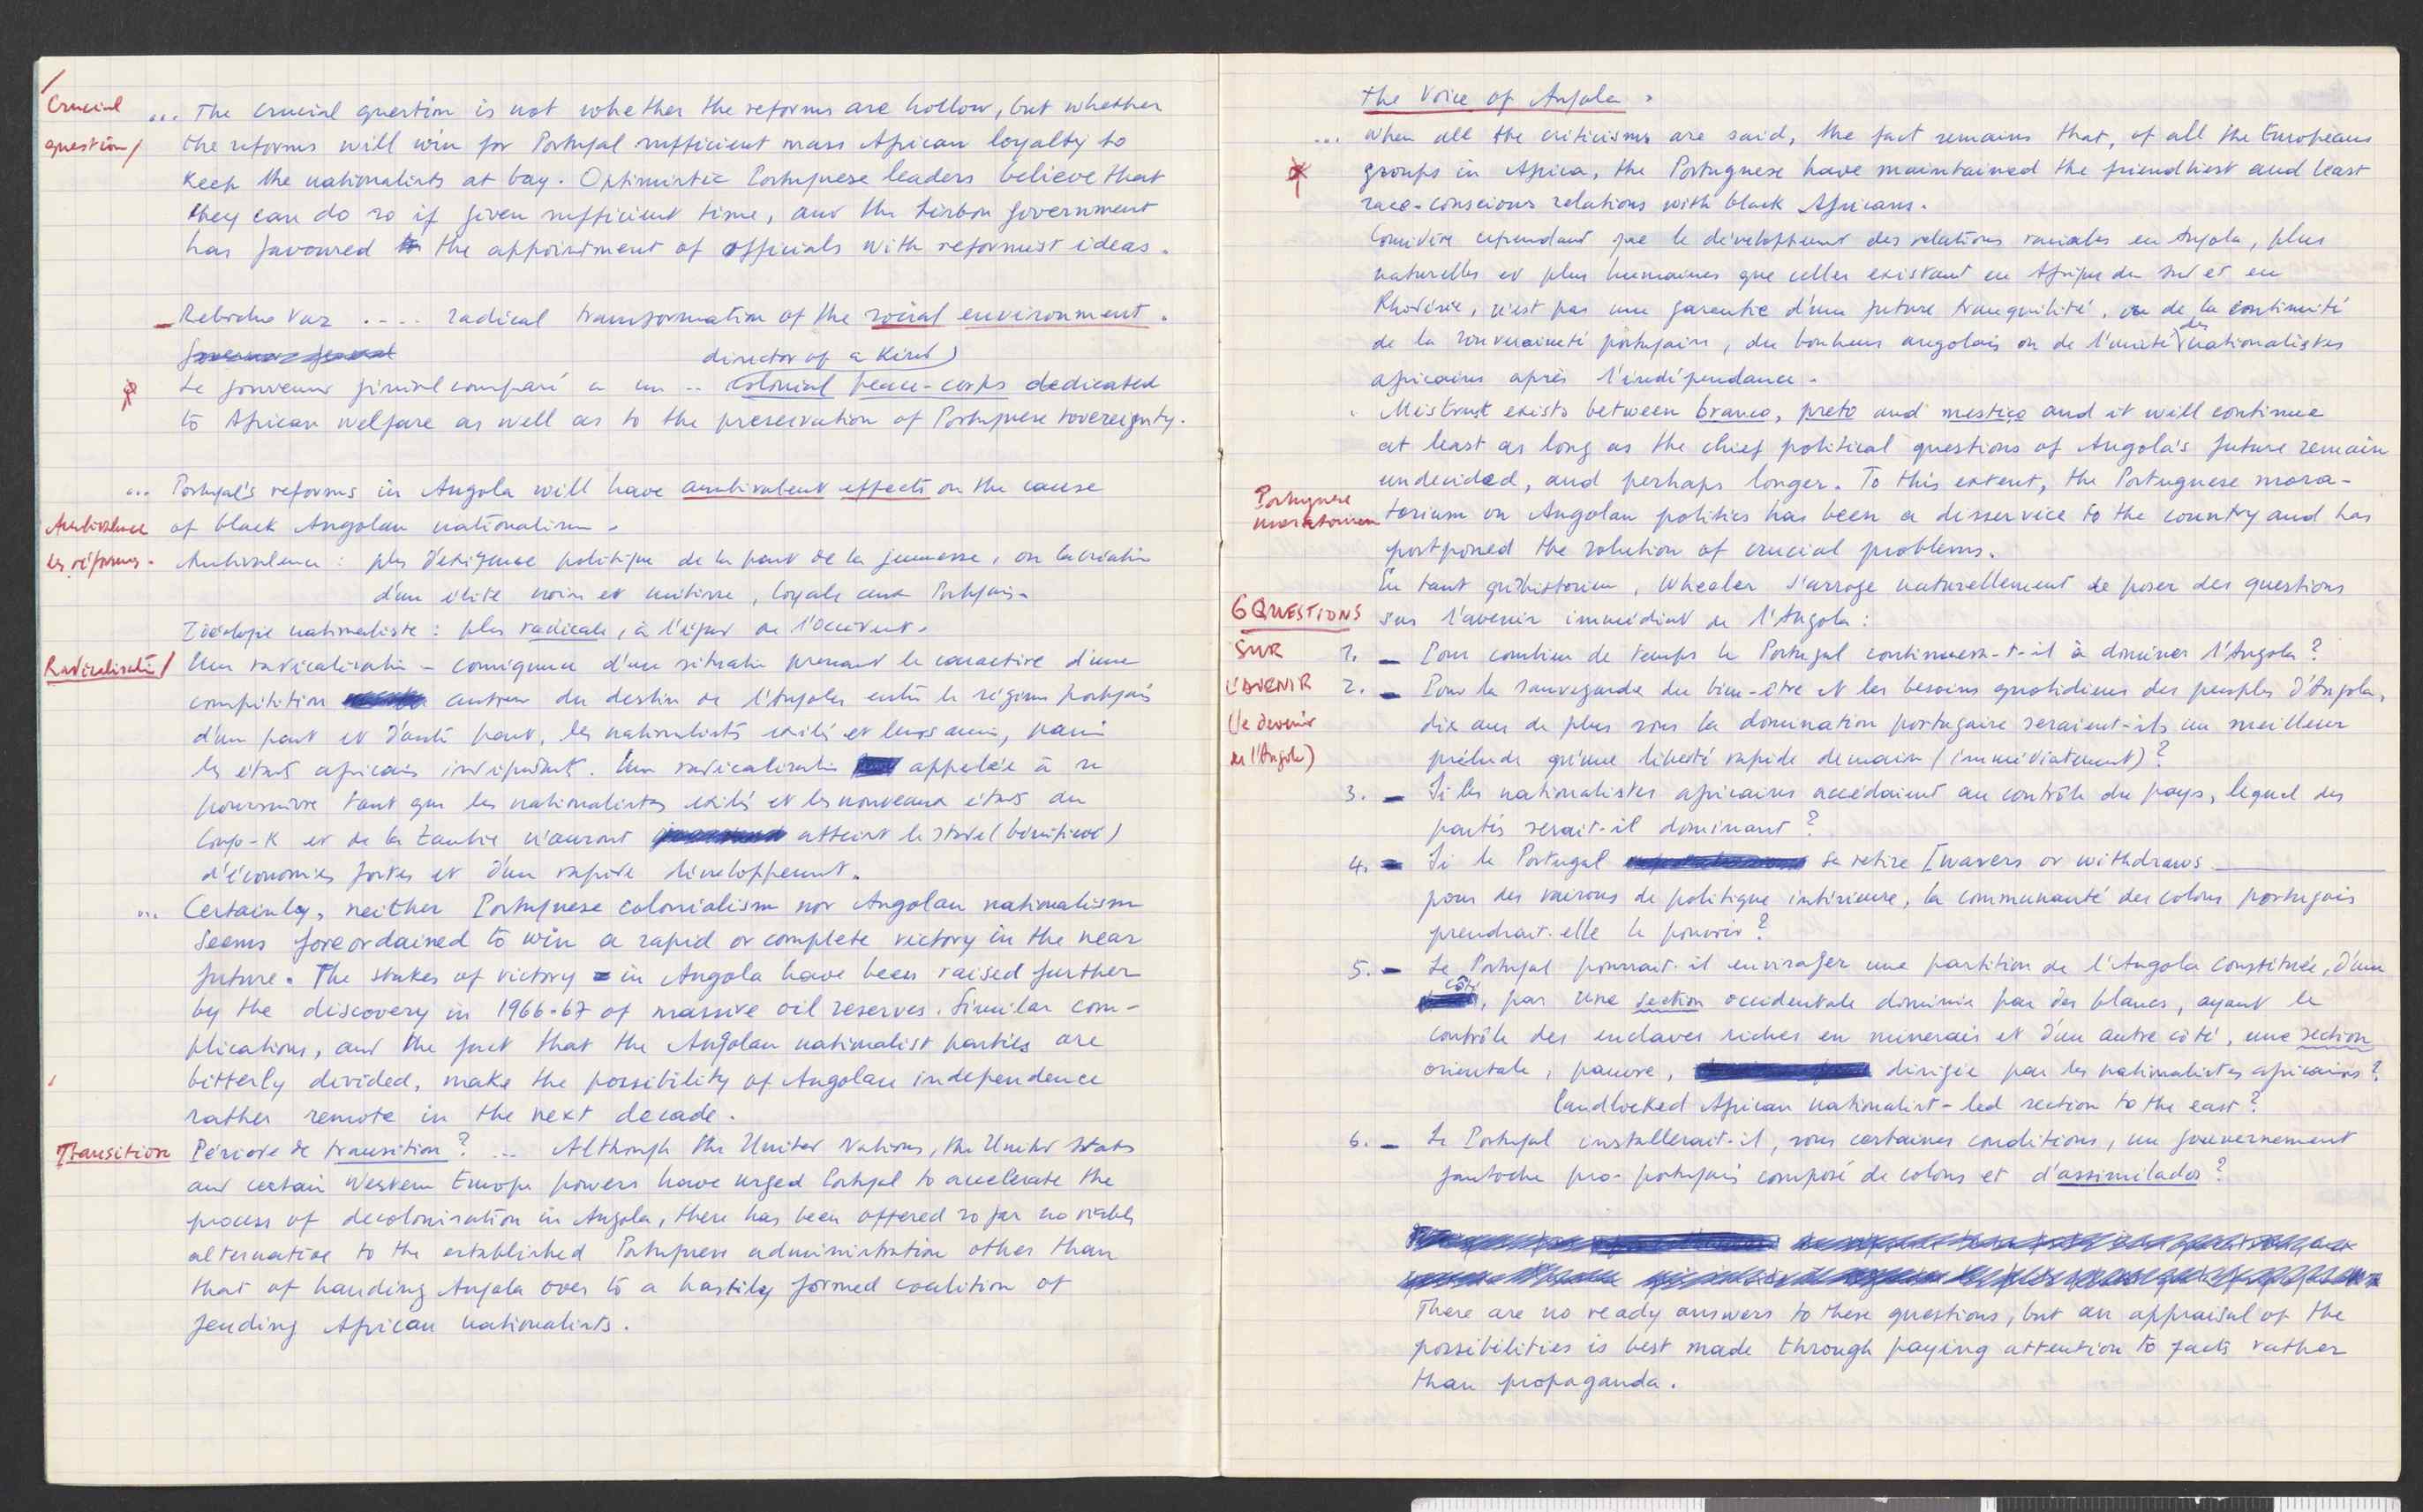 Crucial
question/
... The crucial question is not whether the reforms are hollow, but whether
the reforms will win for Portugal sufficient mass African loyalty to
keep the nationalists at bay. Optimistic Portuguese leaders believe that
they can do so if given sufficient time, and the Lisbon government
has favoured the appointment of officials with reformist ideas.
Rebocho Vaz .... radical transformation of the social environment.
director of a kind)
Le gouverneur général comparé à un .. colonial peace-corps dedicated
to African welfare as well as to the preservation of Portuguese sovereignty.
... Portugal's reforms in Angola will have ambivalent effects on the cause
of black Angolan nationalism.
Ambivalence
des réformes.
Ambivalence : plus d'exigence politique de la part de la jeunesse, ou la création
d'une élite noire et métisse, loyale aux Portugais.
Idéologie nationaliste : plus radicale, à l'égard de l'Occident.
Radicalisation/
Une radicalisation - conséquence d'une situation prenant le caractère d'une
compétition autour du destin de l'Angola entre le régime portugais
d'un part et d'autre part, les nationalistes exilés et leurs amis, parmi
les états africains indépendants. Une radicalisation appelée à se
poursuivre tant que les nationalistes exilés et les nouveaux états du
Congo-K et de la Zambie n'auront atteint le stade (bénéficié)
d'économies fortes et d'un rapide développement.
... Certainly, neither Portuguese colonialism nor Angolan nationalism
seems foreordained to win a rapid or complete victory in the near
future. The stakes of victory in Angola have been raised further
by the discovery in 1966-67 of massive oil reserves. Similar com-
plications, and the fact that the Angolan nationalist parties are
bitterly divided, make the possibility of Angolan independence
rather remote in the next decade.
Transition
Période de transition ? ... Although the United Nations, the United States
and certain Western Europe powers have urged Portugal to accelerate the
process of decolonisation in Angola, there has been offered so far no viable
alternative to the established Portuguese administration other than
that of handing Angola over to a hastily formed coalition of
feuding African nationalists.
The Voice of Angola.
... When all the criticisms are said, the fact remains that, of all the Europeans
groups in Africa, the Portuguese have maintained the friendliest and least
race-conscious relations with black Africans.
Considère cependant que le développement des relations raciales en Angola, plus
naturelles et plus humaines que celles existant en Afrique du Sud et en
Rhodésie, n'est pas une garantie d'une future tranquilité, ou de la continuité
de la souveraineté portugaise, du bonheur angolais ou de l'unité des nationalistes
africains après l'indépendance.
. Mistrust exists between branco, preto and mestiço and it will continue
at least as long as the chief political questions of Angola's future remain
undecided, and perhaps longer. To this extent, the Portuguese mora-
Portuguese
moratorium
torium on Angolan politics has been a disservice to the country and has
postponed the solution of crucial problems.
En tant qu'historien, Wheeler s'arroge naturellement de poser des questions
sur l'avenir immédiat de l'Angola :
6 QUESTIONS
SUR
L'AVENIR
(le devenir
de l'Angola)
1. - Pour combien de temps le Portugal continuera-t-il à dominer l'Angola ?
2. - Pour la sauvegarde du bien-être et les besoins quotidiens des peuples d'Angola,
dix ans de plus sous la domination portugaise seraient-ils un meilleur
prélude qu'une liberté rapide demain (immédiatement) ?
3. - Si les nationalistes africains accédaient au contrôle du pays, lequel des
partis serait-il dominant ?
4. - Si le Portugal se retire [wavers or withdraws
pour des raisons de politique intérieure, la communauté des colons portugais
prendrait-elle le pouvoir ?
5. - Le Portugal pourrait-il envisager une partition de l'Angola constituée, d'un
côté, par une section occidentale dominée par des blancs, ayant le
contrôle des enclaves riches en minerais et d'un autre côté, une section
orientale, pauvre, dirigée par les nationalistes africains ?
landlocked African nationalist-led section to the east ?
6. - Le Portugal installerait-il, sous certaines conditions, un gouvernement
fantoche pro-portugais composé de colons et d'assimilados ?
There are no ready answers to these questions, but an appraisal of the
possibilities is best made through paying attention to facts rather
than propaganda.